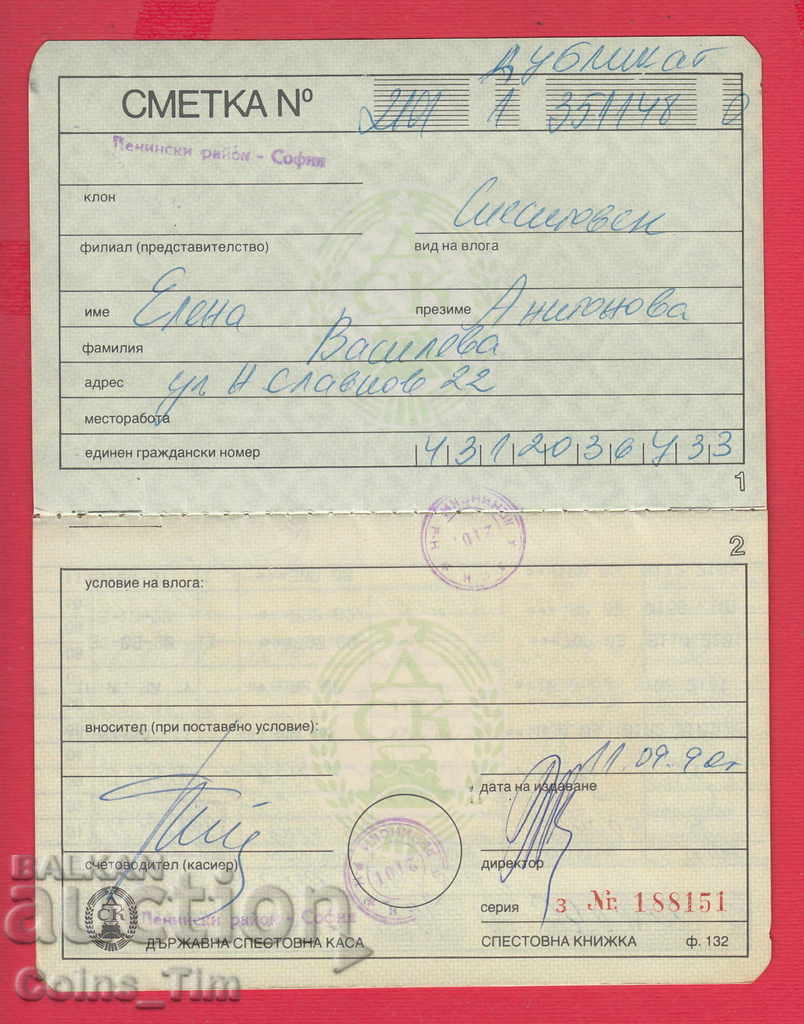 дубликат
СМЕТКА Nº 2101 1 351148 0
Ленински район - София
клон
филиал (представителство) вид на влога
име Елена презиме Антонова
фамилия Василева
адрес ул Н Славков 22
месторабота
единен граждански номер
1
2
условие на влога:
вносител (при поставено условие):
11.09.90г
дата на издаване
счетоводител (касиер) директор
серия з Nr. 188151
Ленински район - София
ДСК
ДЪРЖАВНА СПЕСТОВНА КАСА СПЕСТОВНА КНИЖКА ф. 132
BALKAN
auction
Coins_Tim